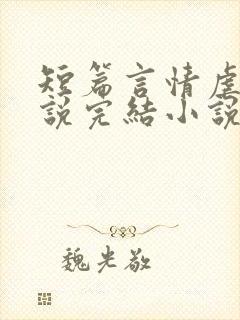 短篇言情虐
說完結小說
魏光敬